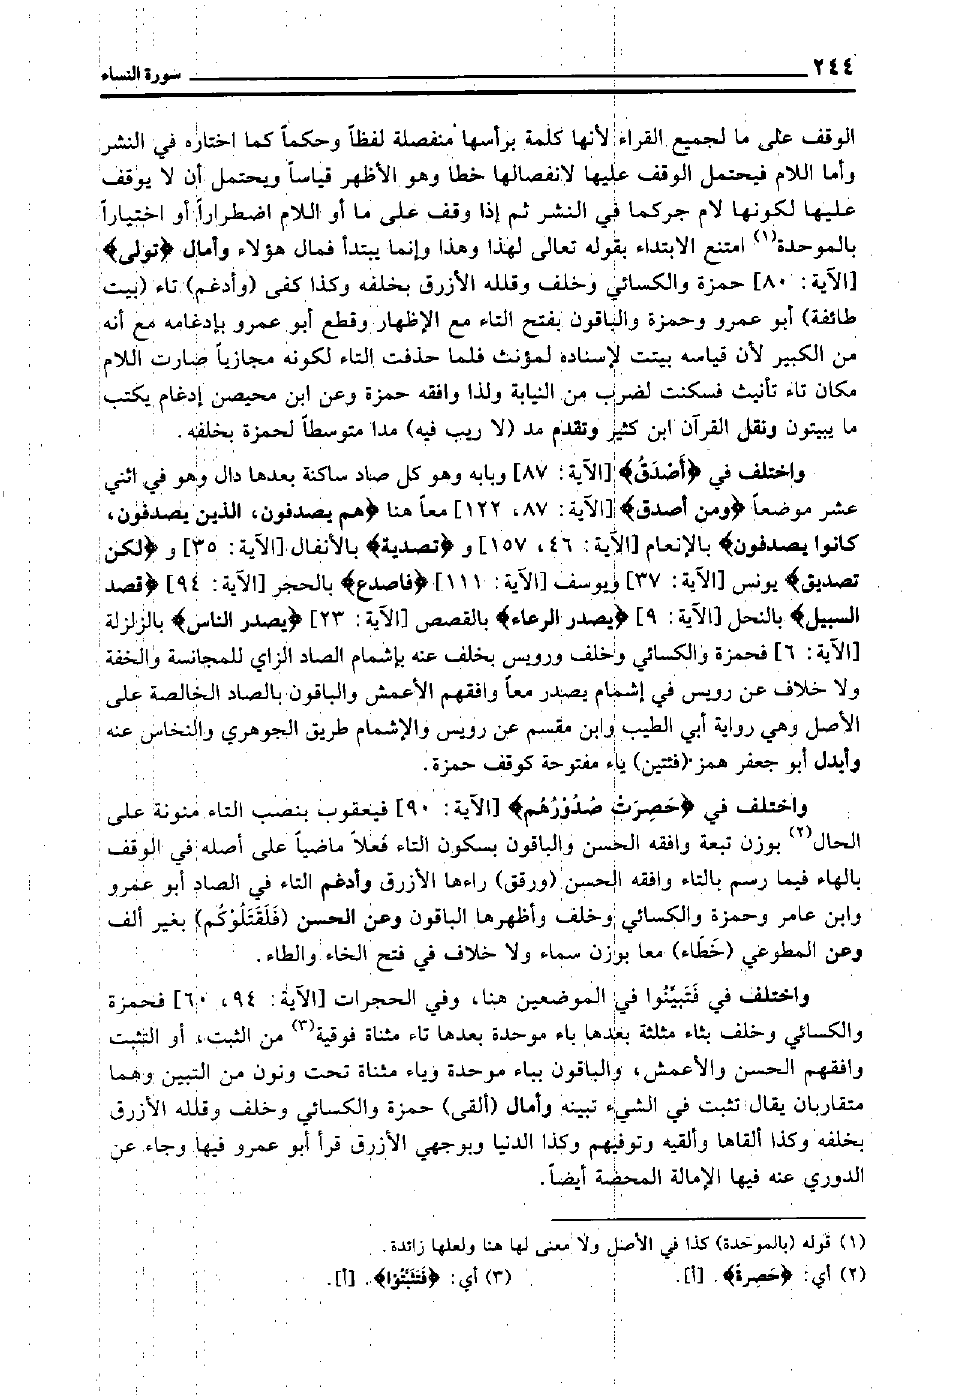 ٢٤٤ سورة النساء
الوقف على ما لجميع القراء لأنها كلمة برأسها منفصلة لفظاً وحكماً كما اختاره في النشر
وأما اللام فيحتمل الوقف عليها لانفصالها خطا وهو الأظهر قياساً ويحتمل أن لا يوقف
عليها لكونها لام جركما في النشر ثم إذا وقف على ما أو اللام اضطراراً أو اختياراً
بالموحدة(١) امتنع الابتداء بقوله تعالى لهذا وهذا وإنما يبتدأ فمال هؤلاء وأمال ﴿تولى﴾
[الآية: ٨٠] حمزة والكسائي وخلف وقلله الأزرق بخلفه وكذا كفى (وأدغم) تاء (بيت
طائفة) أبو عمرو وحمزة والباقون بفتح التاء مع الإظهار وقطع أبو عمرو بإدغامه مع أنه
من الكبير لأن قياسه بيتت لإسناده لمؤنث فلما حذفت التاء لكونه مجازياً صارت اللام
مكان تاء تأنيث فسكنت لضرب من النيابة ولذا وافقه حمزة وعن ابن محيصن إدغام يكتب
ما يبيتون ونقل القرآن ابن كثير وتقدم مد (لا ريب فيه) مدا متوسطاً لحمزة بخلفه.
واختلف في ﴿أَصْدَقُ﴾ [الآية: ٨٧] وبابه وهو كل صاد ساكنة بعدها دال وهو في اثني
عشر موضعاً ﴿ومن أصدق﴾ [الآية: ٨٧، ١٢٢] معاً هنا ﴿هم يصدفون، الذين يصدفون،
كانوا يصدفون﴾ بالإنعام [الآية: ٤٦، ١٥٧] و ﴿تصدية﴾ بالأنفال [الآية: ٣٥] و ﴿لكن
تصديق﴾ يونس [الآية: ٣٧] ويوسف [الآية: ١١١] ﴿فاصدع﴾ بالحجر [الآية: ٩٤] ﴿قصد
السبيل﴾ بالنحل [الآية: ٩] ﴿يصدر الرعاء﴾ بالقصص [الآية: ٢٣] ﴿يصدر الناس﴾ بالزلزلة
[الآية: ٦] فحمزة والكسائي وخلف ورويس بخلف عنه بإشمام الصاد الزاي للمجانسة والخفة
ولا خلاف عن رويس في إشمام يصدر معاً وافقهم الأعمش والباقون بالصاد الخالصة على
الأصل وهي رواية أبي الطيب وابن مقسم عن رويس والإشمام طريق الجوهري والنخاس عنه
وأبدل أبو جعفر همز (فئتين) ياء مفتوحة كوقف حمزة.
واختلف في ﴿حَصِرَتْ صُدُوْرُهُم﴾ [الآية: ٩٠] فيعقوب بنصب التاء منونة على
الحال(٢) بوزن تبعة وافقه الحسن والباقون بسكون التاء فعلاً ماضياً على أصله في الوقف
بالهاء فيما رسم بالتاء وافقه الحسن (ورقق) راءها الأزرق وأدغم التاء في الصاد أبو عمرو
وابن عامر وحمزة والكسائي وخلف وأظهرها الباقون وعن الحسن (فَلَقَتَلُوْكُم) بغير ألف
وعن المطوعي (خَطَاء) معا بوزن سماء ولا خلاف في فتح الخاء والطاء.
واختلف في فَتَبيَّنُوا في الموضعين هنا، وفي الحجرات [الآية: ٩٤، ٦٠] فحمزة
والكسائي وخلف بثاء مثلثة بعدها باء موحدة بعدها تاء مثناة فوقية(٣) من الثبت، أو التثبت
وافقهم الحسن والأعمش، والباقون بباء موحدة وياء مثناة تحت ونون من التبين وهما
متقاربان يقال تثبت في الشيء تبينه وأمال (ألقى) حمزة والكسائي وخلف وقلله الأزرق
بخلفه وكذا ألقاها وألقيه وتوفيهم وكذا الدنيا وبوجهي الأزرق قرأ أبو عمرو فيها وجاء عن
الدوري عنه فيها الإمالة المحضة أيضاً.
(١) قوله (بالموحدة) كذا في الأصل ولا معنى لها هنا ولعلها زائدة.
(٢) أي: ﴿حَصِرةً﴾. [أ]. (٣) أي: ﴿فَتَثَبَّتُوْا﴾. [أ].